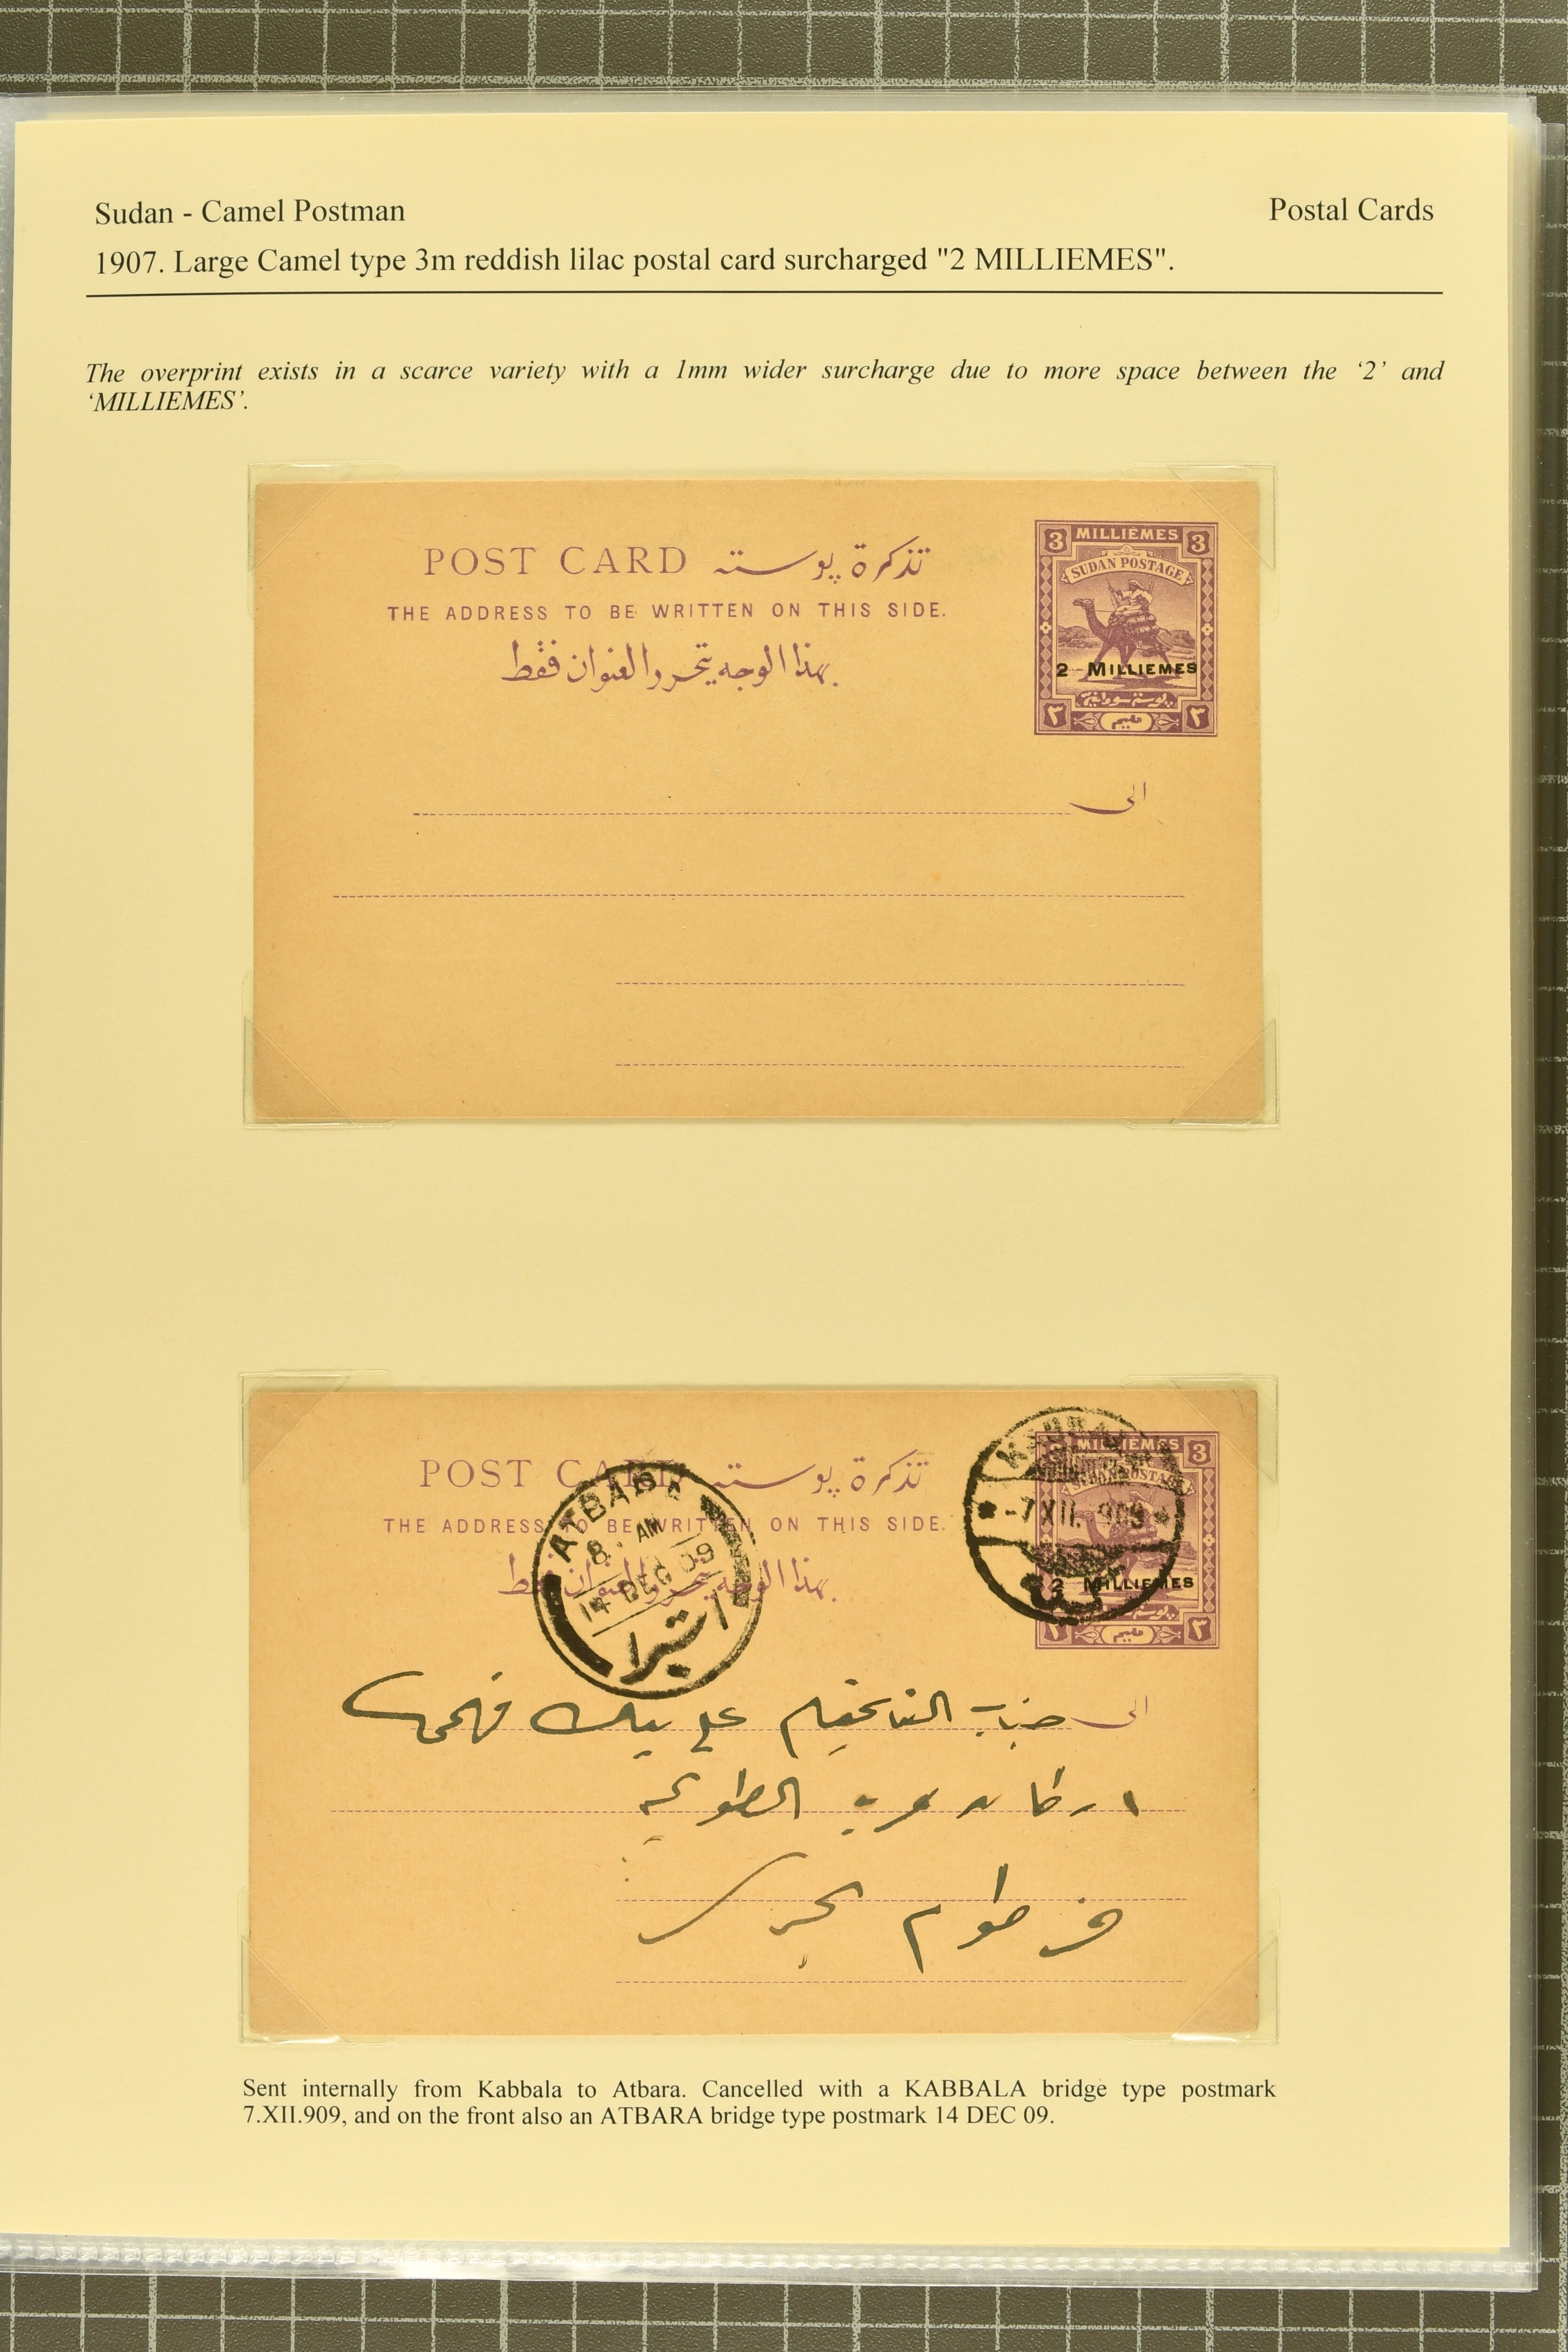 Sudan - Camel Postman
Postal Cards
1907. Large Camel type 3m reddish lilac postal card surcharged "2 MILLIEMES".
The overprint exists in a scarce variety with a 1mm wider surcharge due to more space between the ‘2’ and
‘MILLIEMES’.
POST CARD تذكرة پوسته
THE ADDRESS TO BE WRITTEN ON THIS SIDE.
بهذا الوجه يتحرر العنوان فقط
3 MILLIEMES 3
SUDAN POSTAGE
2 MILLIEMES
پوستة سودانية
٣ مليم ٣
الى
POST CARD تذكرة پوسته
THE ADDRESS TO BE WRITTEN ON THIS SIDE.
بهذا الوجه يتحرر العنوان فقط
ATBARA
8. AM
14 DEC 09
اتبرا
-7 XII. 909
MILLIEMES 3
2 MILLIEMES
مليم ٣
الى جناب على بيك فهمى
اركان حرب الطوبجية
خرطوم بحرى
Sent internally from Kabbala to Atbara. Cancelled with a KABBALA bridge type postmark
7.XII.909, and on the front also an ATBARA bridge type postmark 14 DEC 09.